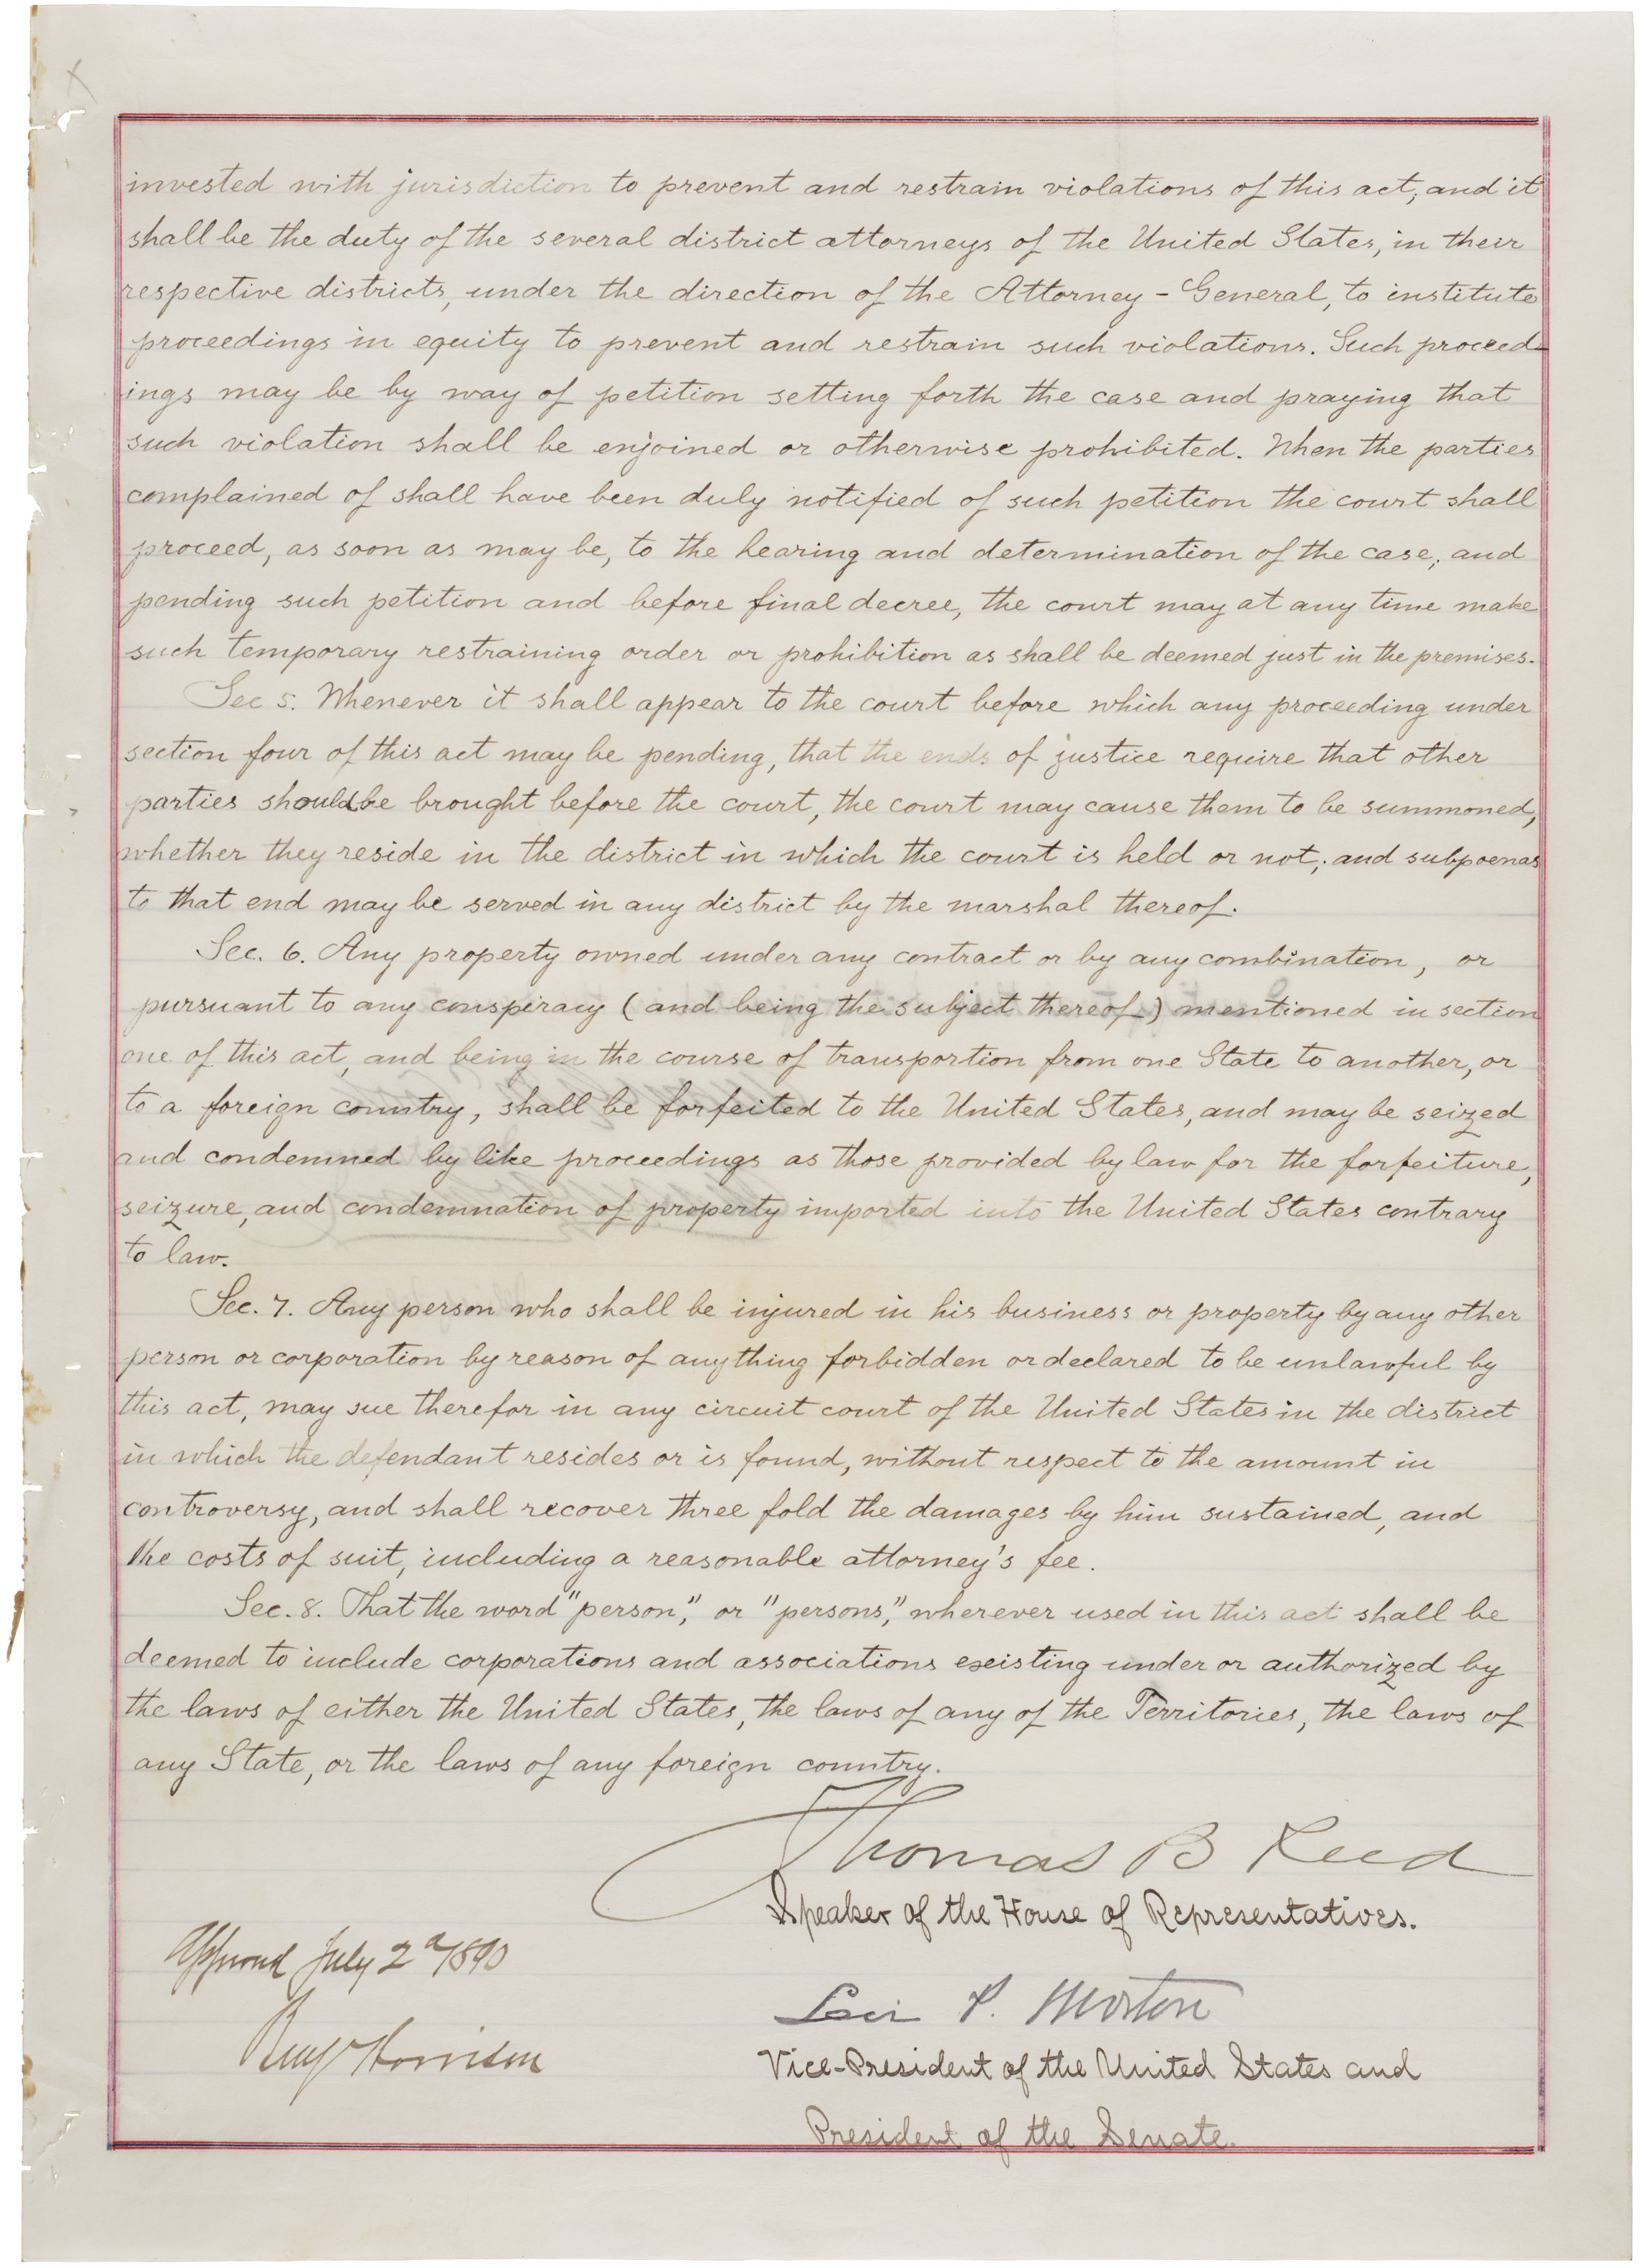 invested with jurisdiction to prevent and restrain violations of this act; and it
shall be the duty of the several district attorneys of the United States, in their
respective districts, under the direction of the Attorney-General, to institute
proceedings in equity to prevent and restrain such violations. Such proceed-
ings may be by way of petition setting forth the case and praying that
such violation shall be enjoined or otherwise prohibited. When the parties
complained of shall have been duly notified of such petition the court shall
proceed, as soon as may be, to the hearing and determination of the case; and
pending such petition and before final decree, the court may at any time make
such temporary restraining order or prohibition as shall be deemed just in the premises.
Sec 5. Whenever it shall appear to the court before which any proceeding under
section four of this act may be pending, that the ends of justice require that other
parties should be brought before the court, the court may cause them to be summoned,
whether they reside in the district in which the court is held or not; and subpoenas
to that end may be served in any district by the marshal thereof.
Sec. 6. Any property owned under any contract or by any combination, or
pursuant to any conspiracy (and being the subject thereof) mentioned in section
one of this act, and being in the course of transportion from one State to another, or
to a foreign country, shall be forfeited to the United States, and may be seized
and condemned by like proceedings as those provided by law for the forfeiture,
seizure, and condemnation of property imported into the United States contrary
to law.
Sec. 7. Any person who shall be injured in his business or property by any other
person or corporation by reason of anything forbidden or declared to be unlawful by
this act, may sue therefor in any circuit court of the United States in the district
in which the defendant resides or is found, without respect to the amount in
controversy, and shall recover three fold the damages by him sustained, and
the costs of suit, including a reasonable attorney's fee.
Sec. 8. That the word "person," or "persons," wherever used in this act shall be
deemed to include corporations and associations existing under or authorized by
the laws of either the United States, the laws of any of the Territories, the laws of
any State, or the laws of any foreign country.
Thomas B Reed
Speaker of the House of Representatives.
Approved July 2d 1890
Benj Harrison
Levi P. Morton
Vice-President of the United States and
President of the Senate.